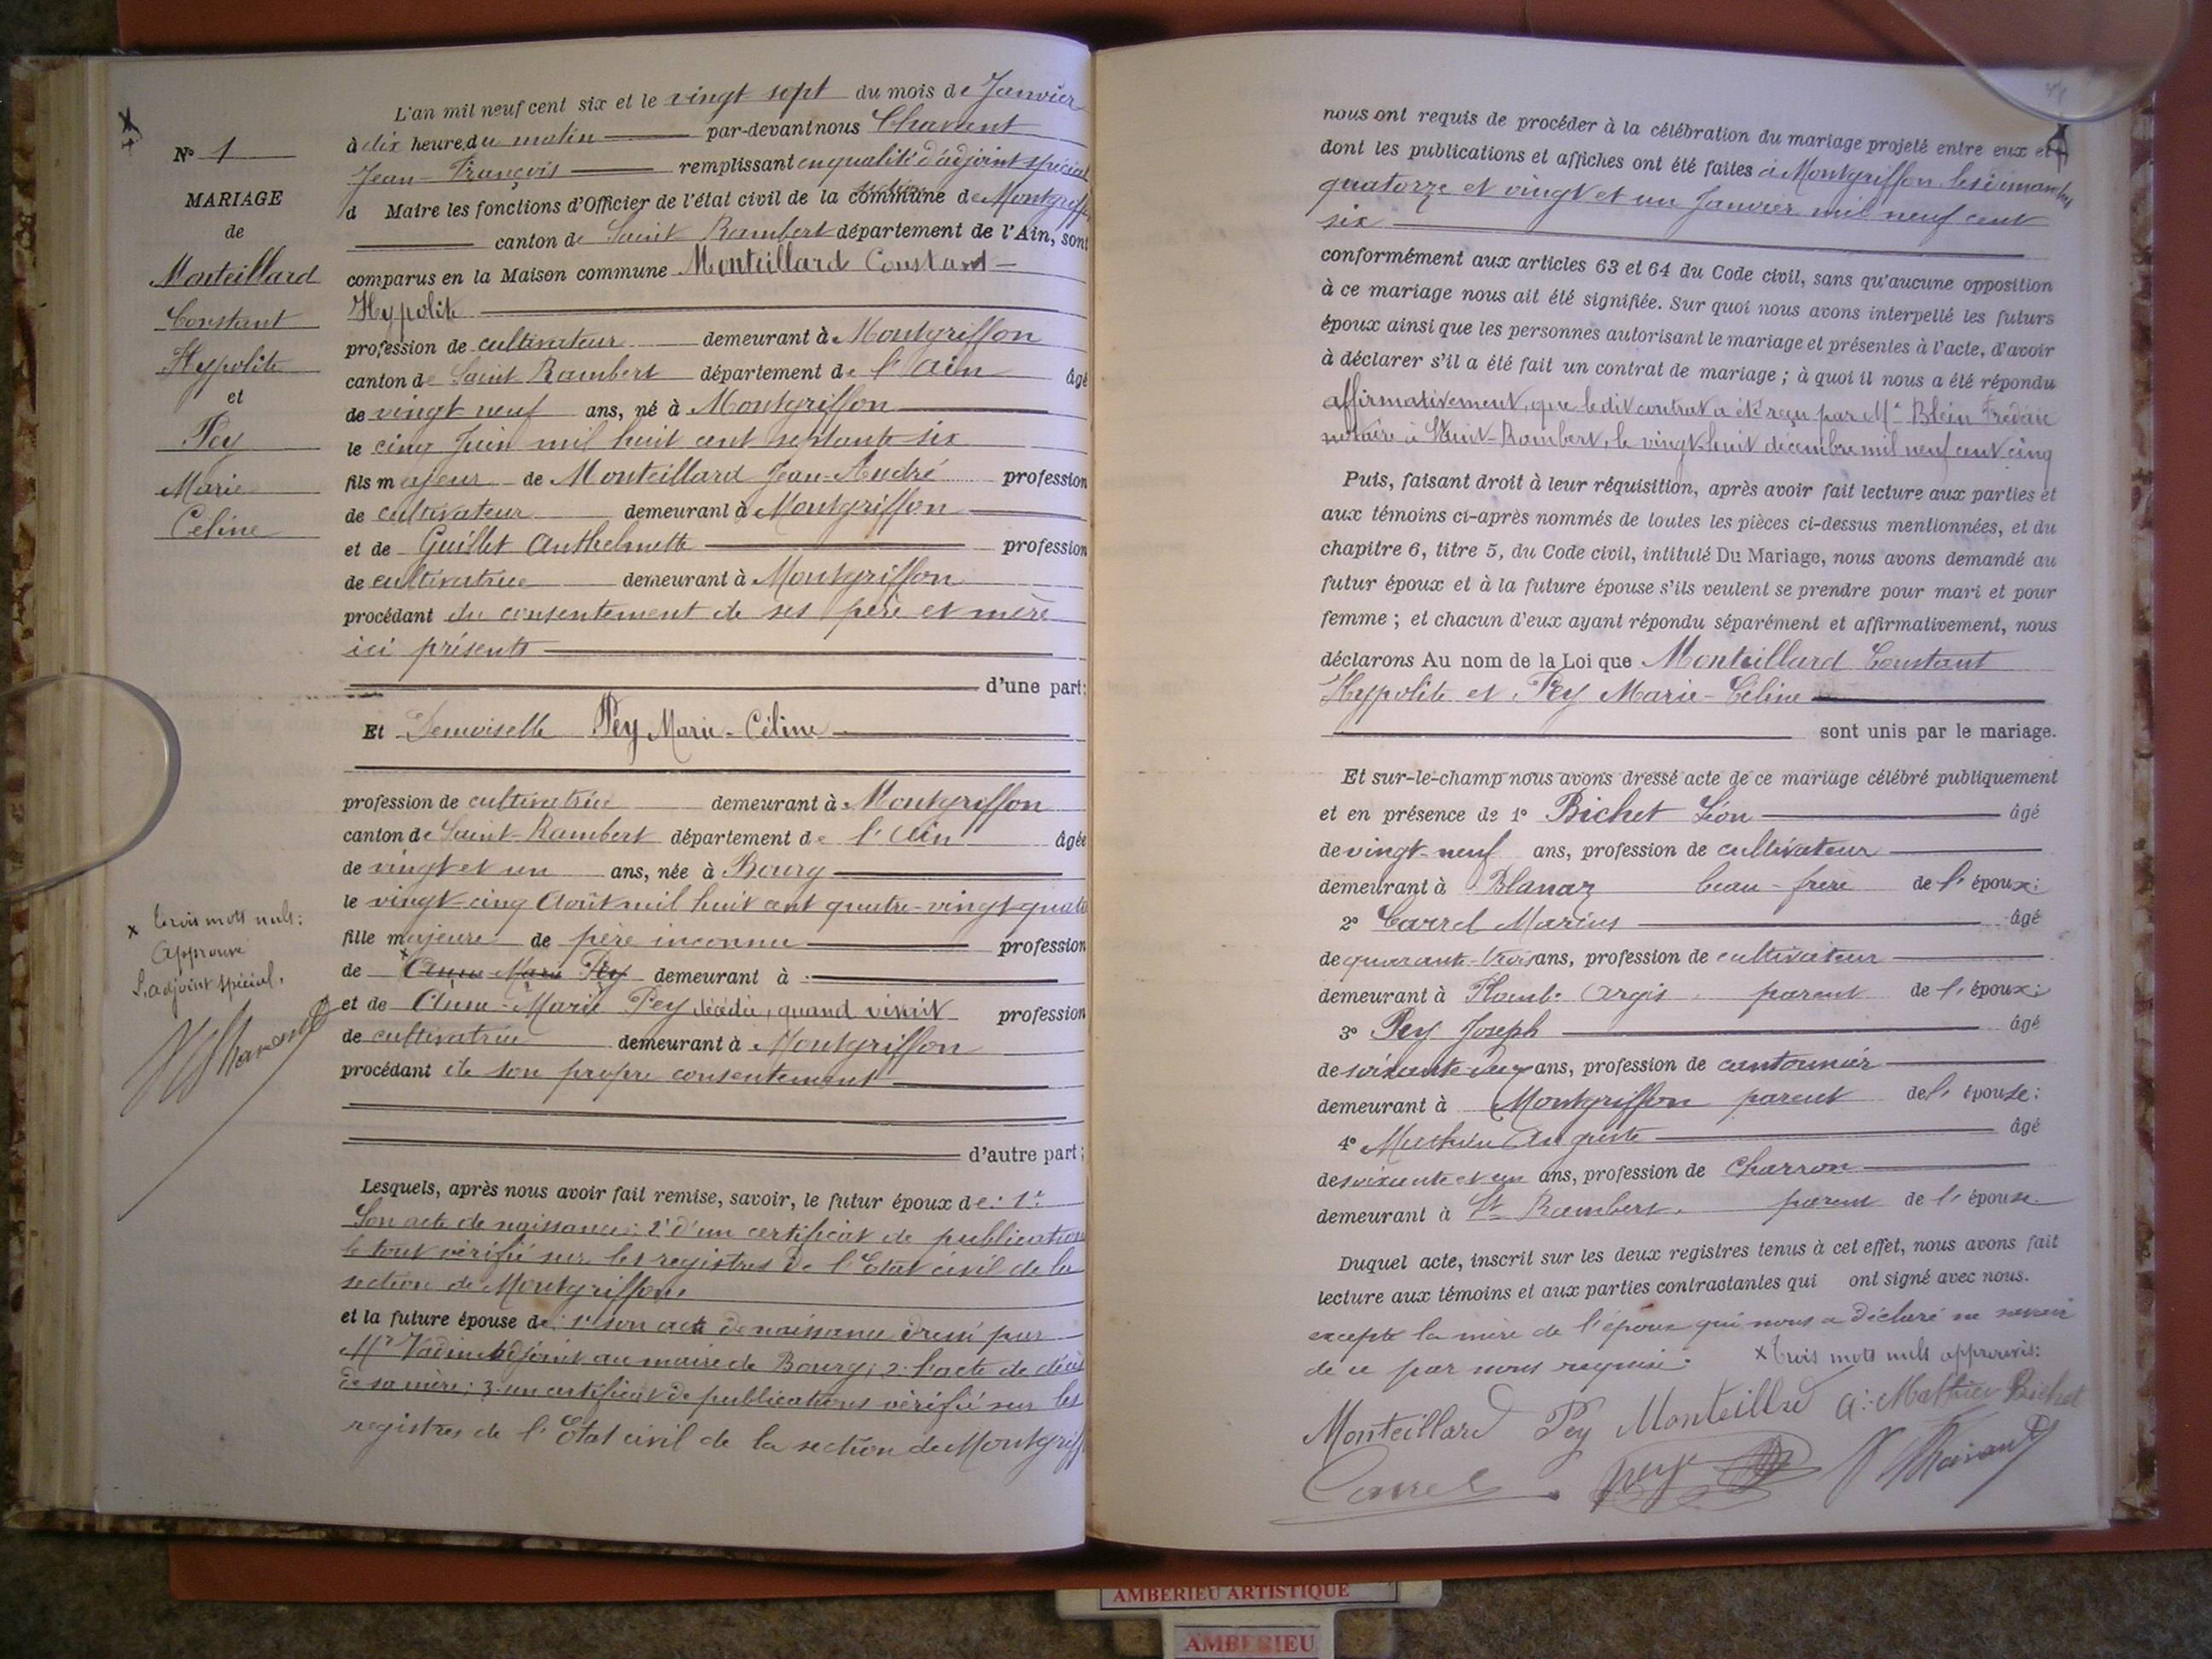 N° 1
MARIAGE
de
Monteillard
Constant
Hypolite
et
Pey
Marie
Céline
x trois mots nuls:
Approuvé
L'adjoint spécial,
L'an mil neuf cent six et le vingt sept du mois de Janvier
à dix heure du matin par-devant nous Chavant
Jean-François remplissant en qualité d'adjoint spécial
d Maire les fonctions d'Officier de l'état civil de la commune section de Montgriffon
canton de Saint Rambert département de l'Ain, sont
comparus en la Maison commune Monteillard Constant
Hypolite
profession de cultivateur demeurant à Montgriffon
canton de Saint Rambert département de l'Ain âgé
de vingt neuf ans, né à Montgriffon
le cinq Juin mil huit cent septante six
fils majeur de Monteillard Jean-André profession
de cultivateur demeurant à Montgriffon
et de Guillet Anthelmette profession
de cultivatrice demeurant à Montgriffon
procédant du consentement de ses père et mère
ici présents
d'une part:
Et Demoiselle Pey Marie-Céline
profession de cultivatrice demeurant à Montgriffon
canton de Saint-Rambert département de l'Ain âgée
de vingt et un ans, née à Bourg
le vingt-cinq Août mil huit cent quatre-vingt-quatre
fille majeure de père inconnu profession
de Anne Marie Pey demeurant à
et de Anne-Marie Pey décédée, quand vivait profession
de cultivatrice demeurant à Montgriffon
procédant de son propre consentement
d'autre part;
Lesquels, après nous avoir fait remise, savoir, le futur époux de: 1°
Son acte de naissance; 2° d'un certificat de publication
le tout vérifié sur les registres de l'Etat civil de la
section de Montgriffon
et la future épouse de: 1° son acte de naissance dressé par
Mr adjoint au maire de Bourg; 2. l'acte de décès
de sa mère; 3. un certificat de publications vérifié sur les
registres de l'Etat civil de la section de Montgriff
nous ont requis de procéder à la célébration du mariage projeté entre eux et
dont les publications et affiches ont été faites à Montgriffon les dimanches
quatorze et vingt et un Janvier mil neuf cent
six
conformément aux articles 63 et 64 du Code civil, sans qu'aucune opposition
à ce mariage nous ait été signifiée. Sur quoi nous avons interpellé les futurs
époux ainsi que les personnes autorisant le mariage et présentes à l'acte, d'avoir
à déclarer s'il a été fait un contrat de mariage; à quoi il nous a été répondu
affirmativement, que ledit contrat a été reçu par Me Blein
notaire à Saint-Rambert, le vingt-huit décembre mil neuf cent cinq
Puis, faisant droit à leur réquisition, après avoir fait lecture aux parties et
aux témoins ci-après nommés de toutes les pièces ci-dessus mentionnées, et du
chapitre 6, titre 5, du Code civil, intitulé Du Mariage, nous avons demandé au
futur époux et à la future épouse s'ils veulent se prendre pour mari et pour
femme; et chacun d'eux ayant répondu séparément et affirmativement, nous
déclarons Au nom de la Loi que Monteillard Constant
Hypolite et Pey Marie-Céline
sont unis par le mariage.
Et sur-le-champ nous avons dressé acte de ce mariage célébré publiquement
et en présence de 1° Bichet Léon âgé
de vingt-neuf ans, profession de cultivateur
demeurant à Blanaz beau-frère de l'époux;
2° Carrel Marius âgé
de quarante-trois ans, profession de cultivateur
demeurant à Argis parent de l'époux;
3° Pey Joseph âgé
de soixante-deux ans, profession de cantonnier
demeurant à Montgriffon parent de l'épouse;
4° Mathieu Auguste âgé
de soixante et un ans, profession de Charron
demeurant à St Rambert. parent de l'épouse
Duquel acte, inscrit sur les deux registres tenus à cet effet, nous avons fait
lecture aux témoins et aux parties contractantes qui ont signé avec nous.
excepté la mère de l'époux qui nous a déclaré ne savoir
de ce par nous requise. x trois mots nuls approuvés:
Monteillard Pey Monteillard a. Mathieu Bichet
Carrel Pey Chavant
AMBERIEU ARTISTIQUE
AMBERIEU